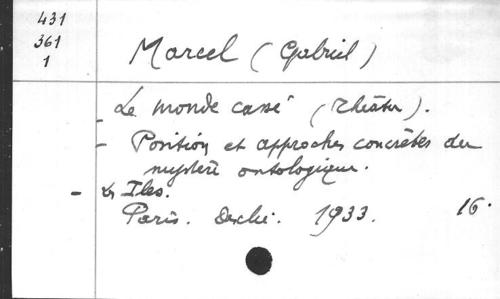 431
361
1
Marcel (Gabriel)
- Le monde cassé (théâtre).
- Position et approches concrètes du
mystère ontologique.
- Les Iles.
Paris. Desclée. 1933. 16.